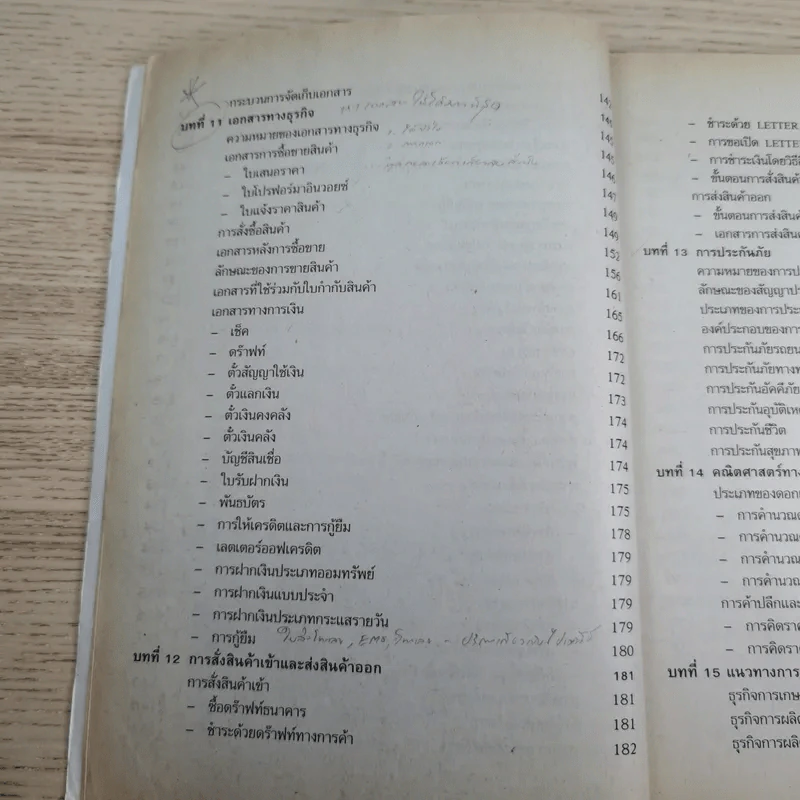 กระบวนการจัดเก็บเอกสาร
บทที่ 11 เอกสารทางธุรกิจ
ความหมายของเอกสารทางธุรกิจ
เอกสารการซื้อขายสินค้า 145
– ใบเสนอราคา 146
– ใบโปรฟอร์มาอินวอยซ์
– ใบแจ้งราคาสินค้า 149
การสั่งซื้อสินค้า 149
เอกสารหลังการซื้อขาย 152
ลักษณะของการขายสินค้า 156
เอกสารที่ใช้ร่วมกับใบกำกับสินค้า 161
เอกสารทางการเงิน 165
– เช็ค 166
– ดร๊าฟท์ 172
– ตั๋วสัญญาใช้เงิน 172
– ตั๋วแลกเงิน 173
– ตั๋วเงินคงคลัง 174
– ตั๋วเงินคลัง 174
– บัญชีสินเชื่อ 174
– ใบรับฝากเงิน 175
– พันธบัตร 175
– การให้เครดิตและการกู้ยืม 178
– เลตเตอร์ออฟเครดิต 179
– การฝากเงินประเภทออมทรัพย์ 179
– การฝากเงินแบบประจำ 179
– การฝากเงินประเภทกระแสรายวัน 179
– การกู้ยืม 180
บทที่ 12 การสั่งสินค้าเข้าและส่งสินค้าออก 181
การสั่งสินค้าเข้า 181
– ซื้อดร๊าฟท์ธนาคาร 181
– ชำระด้วยดร๊าฟท์ทางการค้า 182
– ชำระด้วย LETTER
– การขอเปิด LETTE
– การชำระเงินโดยวิธี
– ขั้นตอนการสั่งสินค้
การส่งสินค้าออก
– ขั้นตอนการส่งสินค้
– เอกสารการส่งสิน
บทที่ 13 การประกันภัย
ความหมายของการป
ลักษณะของสัญญาป
ประเภทของการประ
องค์ประกอบของการ
การประกันภัยรถยน
การประกันภัยทาง
การประกันอัคคีภัย
การประกันอุบัติเห
การประกันชีวิต
การประกันสุขภาพ
บทที่ 14 คณิตศาสตร์ทาง
ประเภทของดอก
– การคำนวณ
– การคำนวณ
– การคำนวณ
– การคำนวณ
การค้าปลีกและ
– การคิดรา
– การคิดรา
บทที่ 15 แนวทางการ
ธุรกิจการเกษ
ธุรกิจการผลิ
ธุรกิจการผลิ